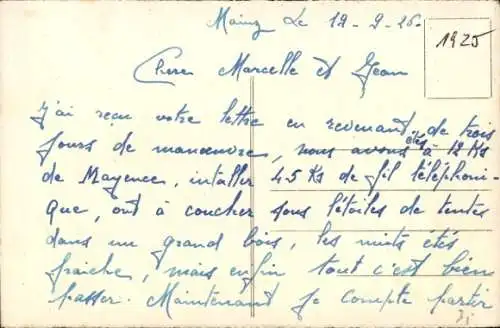 Mainz Le 12-9-26-
1925
Chers Marcelle et Jean
J'ai reçu votre lettre en revenant de trois
jours de manœuvre, nous avons étés à 12 Ks
de Mayence, intaller 45 Ks de fil téléphoni-
que, ont à coucher sous l'étoiles de tentes
dans un grand bois, les nuits étés
fraiche, mais enfin tout c'est bien
passer. Maintenant je compte partir